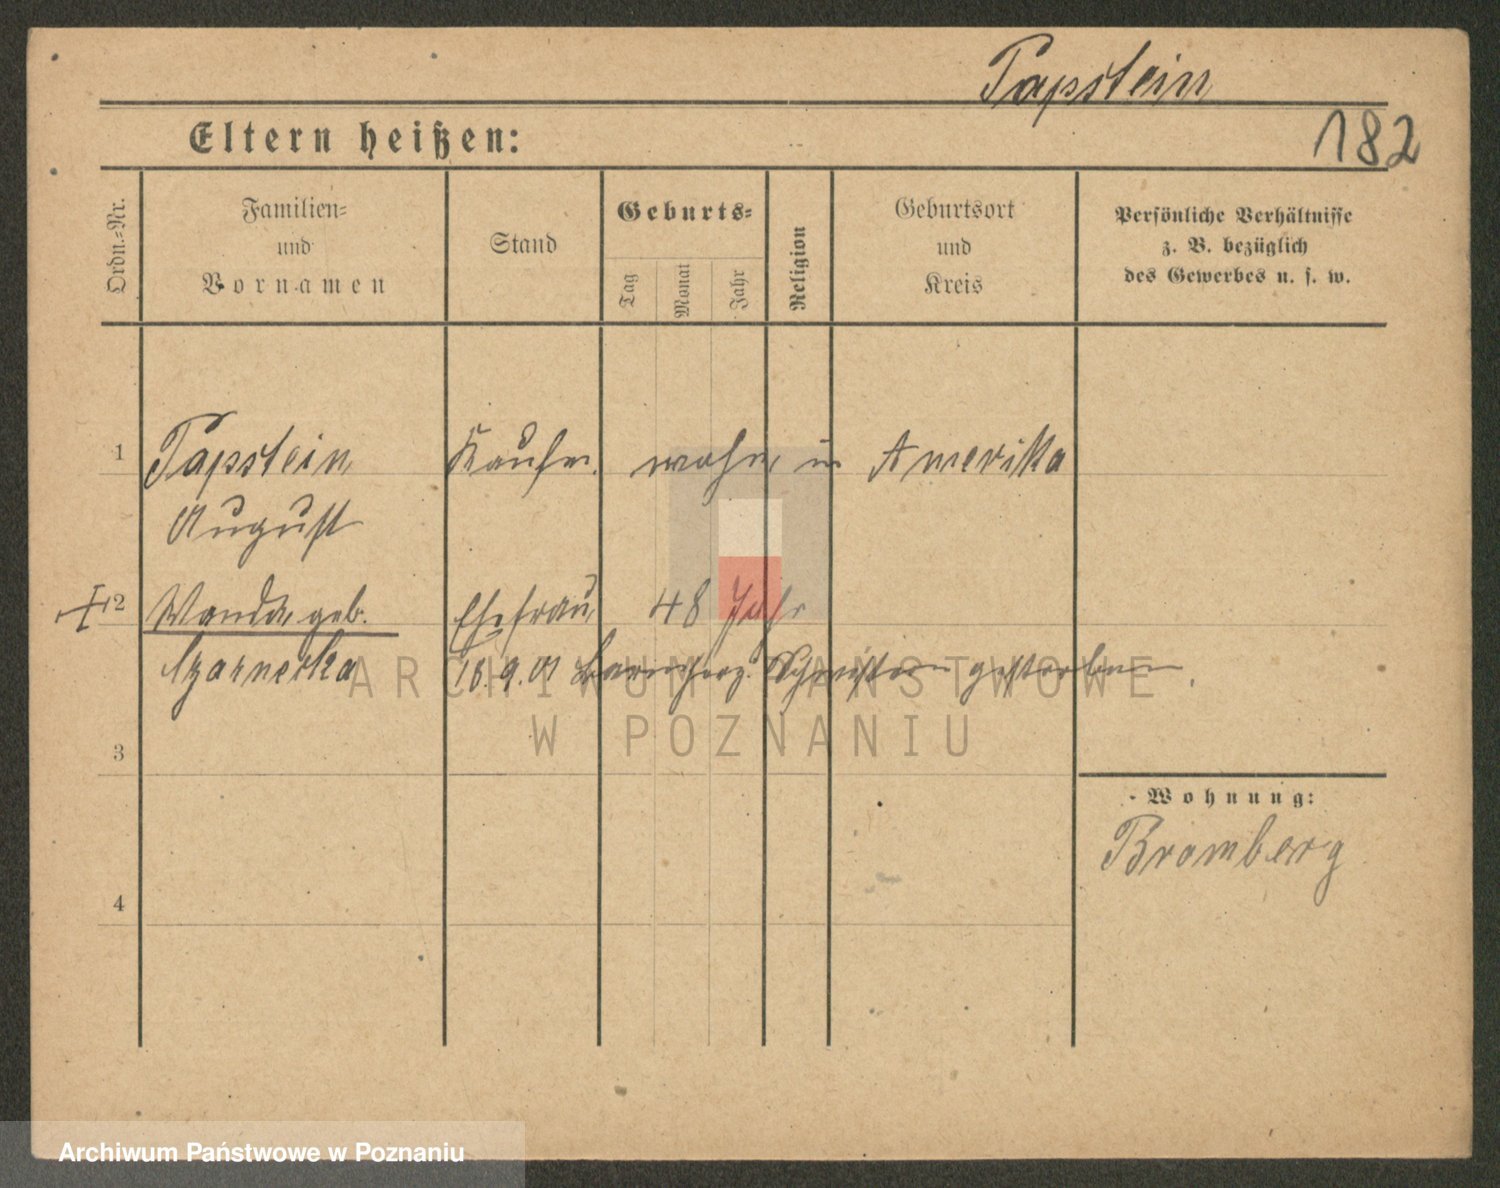 Papstein
182
Eltern heißen:
Ordn.-Nr.
Familien-
und
Vornamen
Stand
Geburts-
Tag
Monat
Jahr
Religion
Geburtsort
und
Kreis
Persönliche Verhältnisse
z. B. bezüglich
des Gewerbes u. s. w.
1 Papstein Kaufm. wohn. in Amerika
August
2 Wanda, geb. Ehefrau 48 Jahr
Czarnecka 18.9.01 Barmherz. Schwestern gestorben.
ARCHIWUM PAŃSTWOWE
W POZNANIU
3
Wohnung:
Bromberg
4
Archiwum Państwowe w Poznaniu